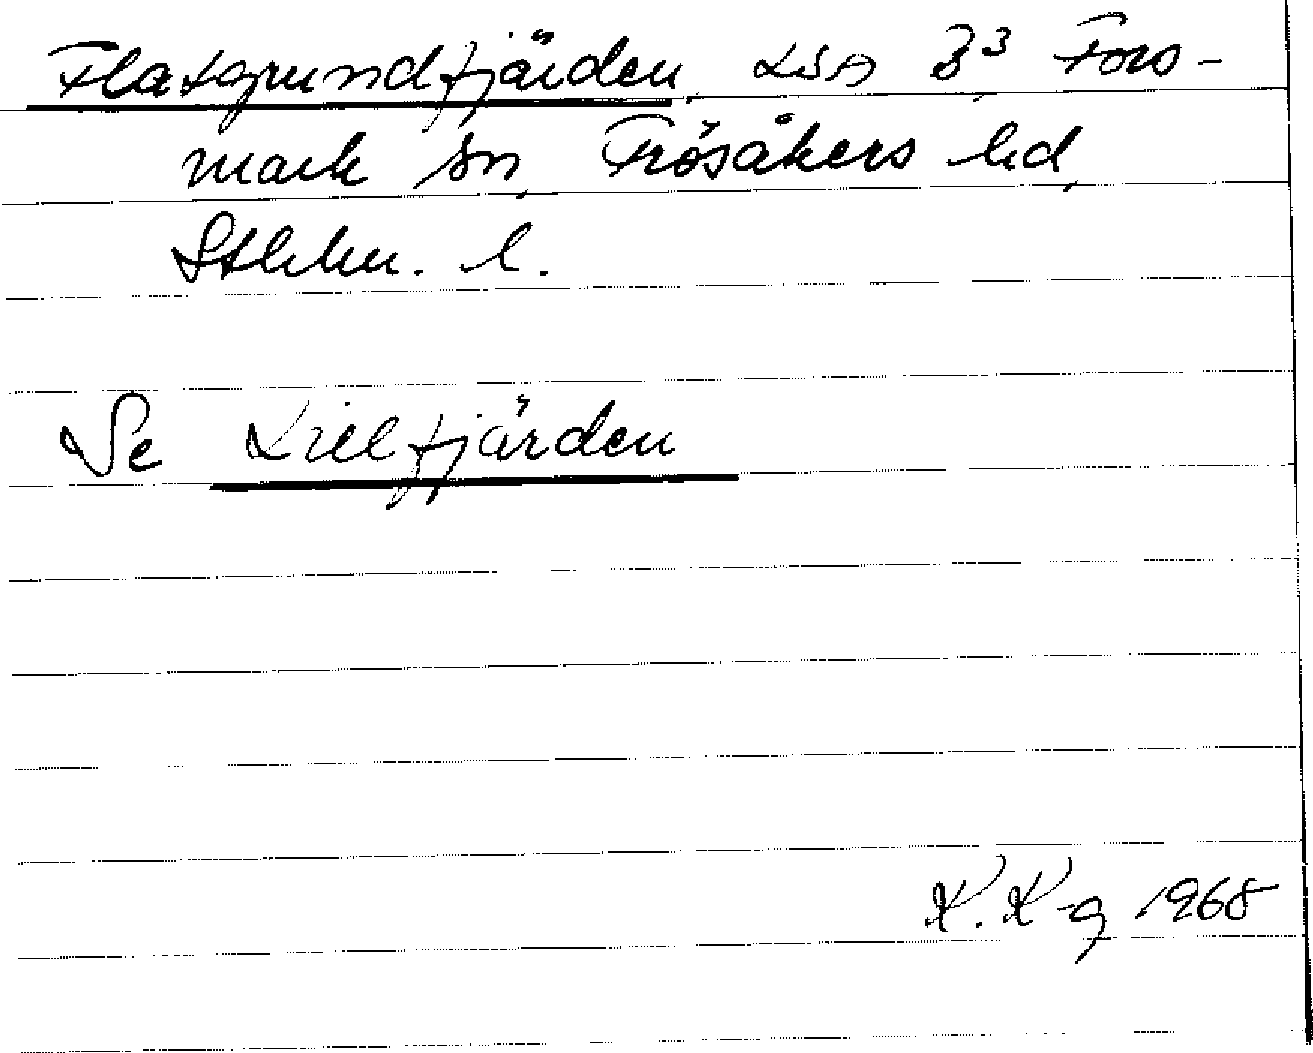 Flatgrundfjärden, B³, Fors-
mark sn, Frösåkers hd,
Sthlm. l.
Se fjärden
K. K-g 1968